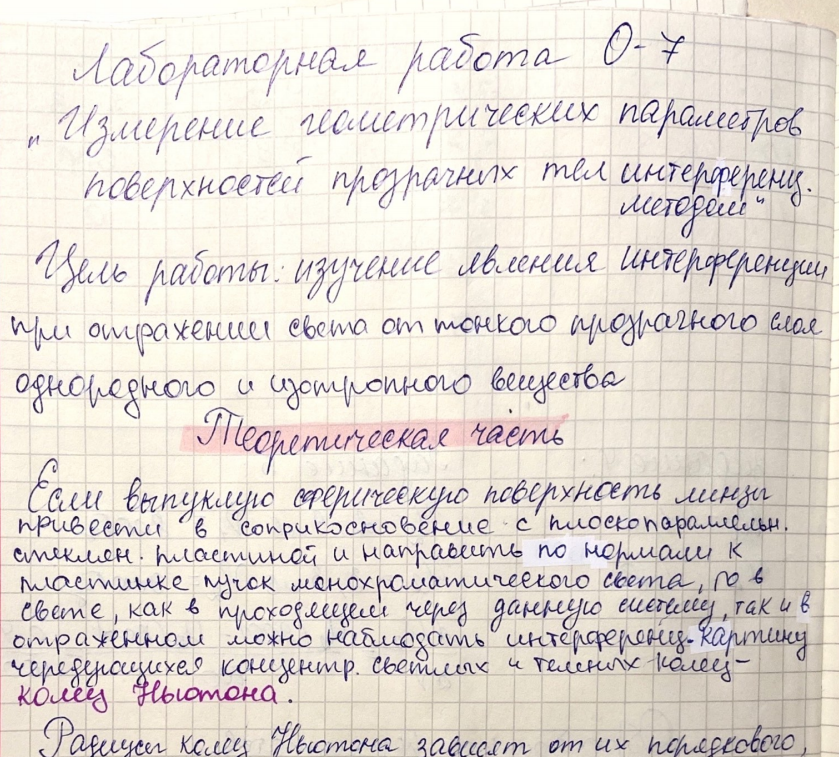 Лабораторная работа О-7
„Измерение геометрических параметров
поверхностей прозрачных тел интерференц.
методом“
Цель работы: изучение явления интерференции
при отражении света от тонкого прозрачного слоя
однородного и изотропного вещества
Теоретическая часть
Если выпуклую сферическую поверхность линзы
привести в соприкосновение с плоскопараллельн.
стеклян. пластиной и направить по нормали к
пластинке пучок монохроматического света, то в
свете, как в проходящем через данную систему, так и в
отраженном можно наблюдать интерференц. картину
чередующихся концентр. светлых и темных колец-
колец Ньютона.
Радиусы колец Ньютона зависят от их порядкового,